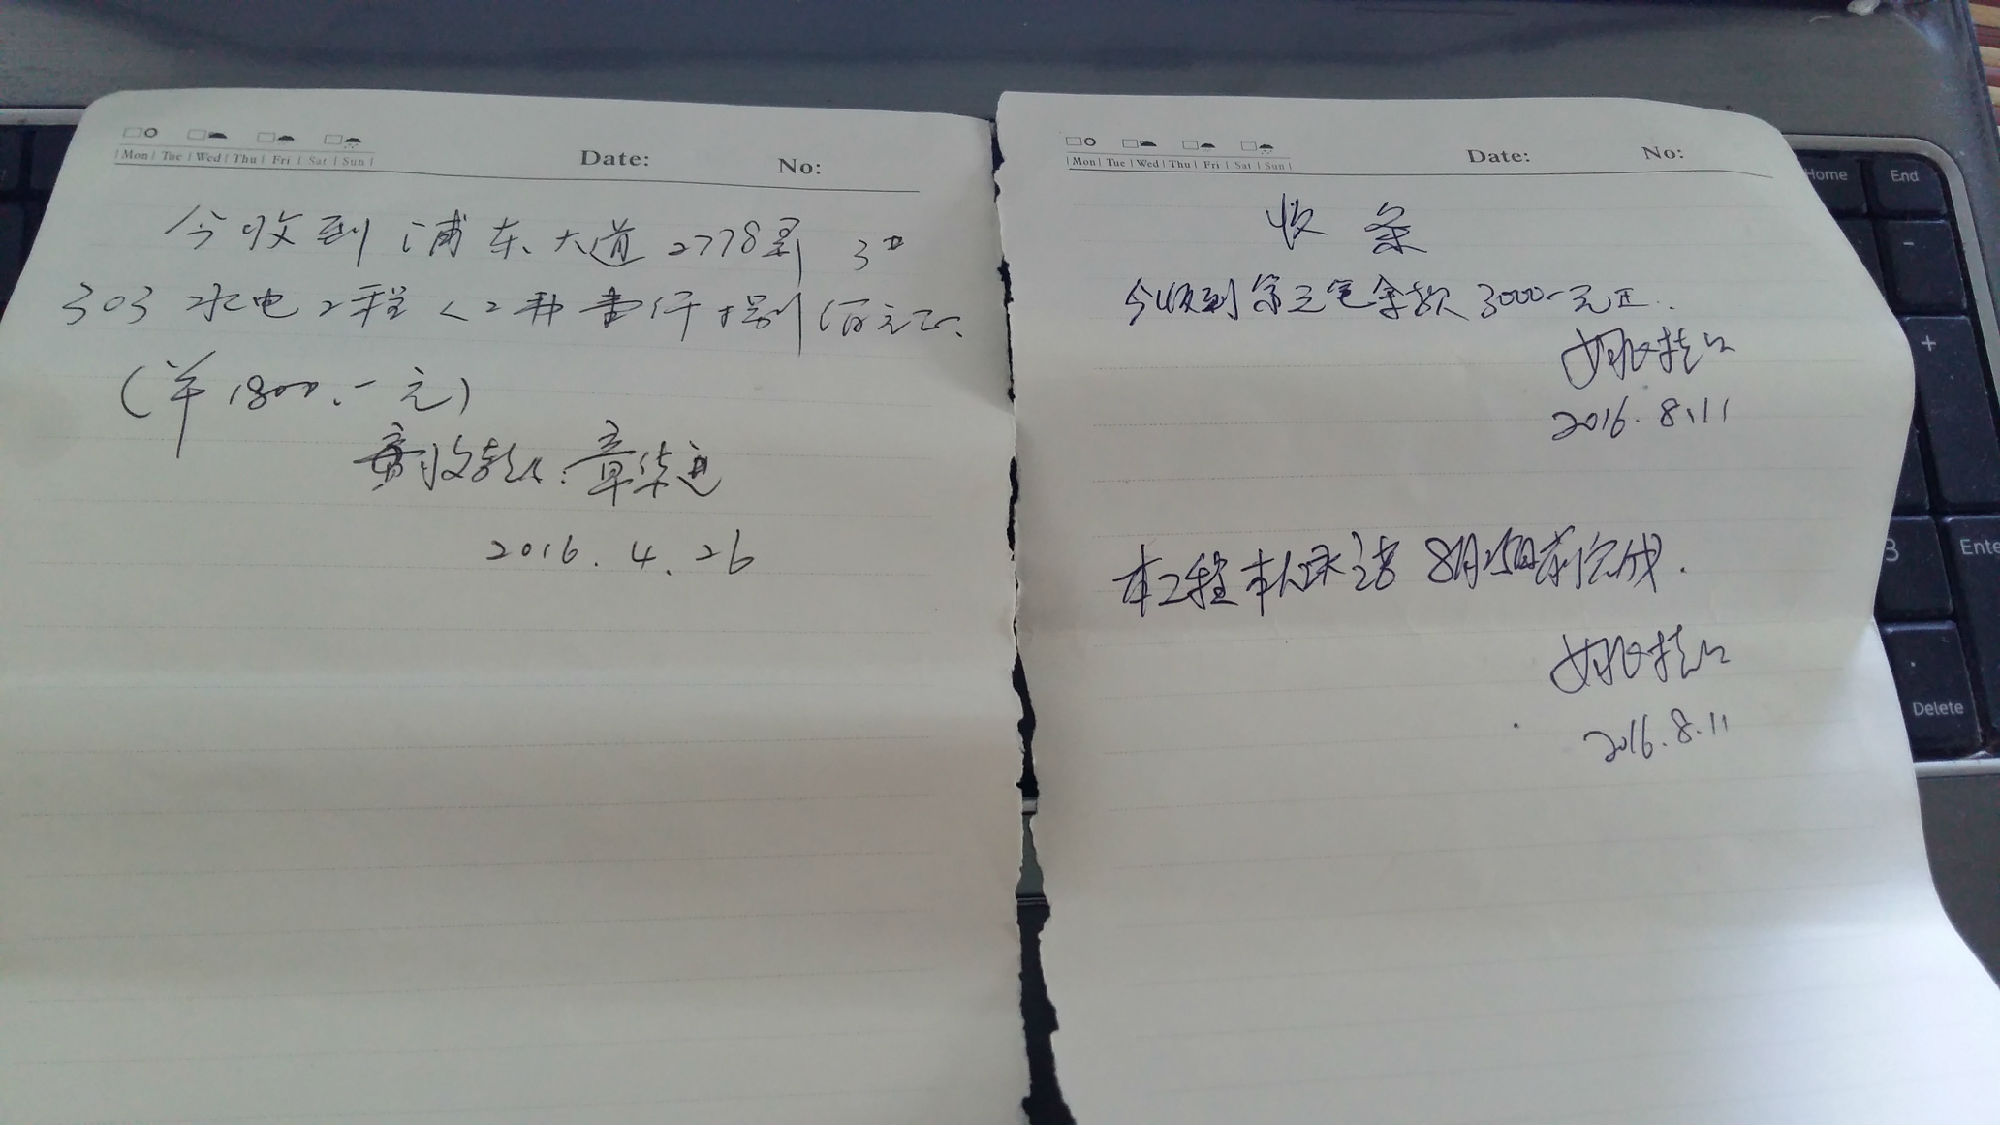 Mon Tue Wed Thu Fri Sat Sun Date: No:
今收到 浦东大道2778号 3口
303 水电工程 人工 仟捌佰元正.
(羊1800.-元)
收款人:章华进
2016.4.26
Mon Tue Wed Thu Fri Sat Sun Date: No:
收条
今收到第三笔余款3000-元正.
姚
2016.8.11
本工程本人承诺8月15日前完成.
姚
2016.8.11
Home End
-
+
3 Ente
. Delete